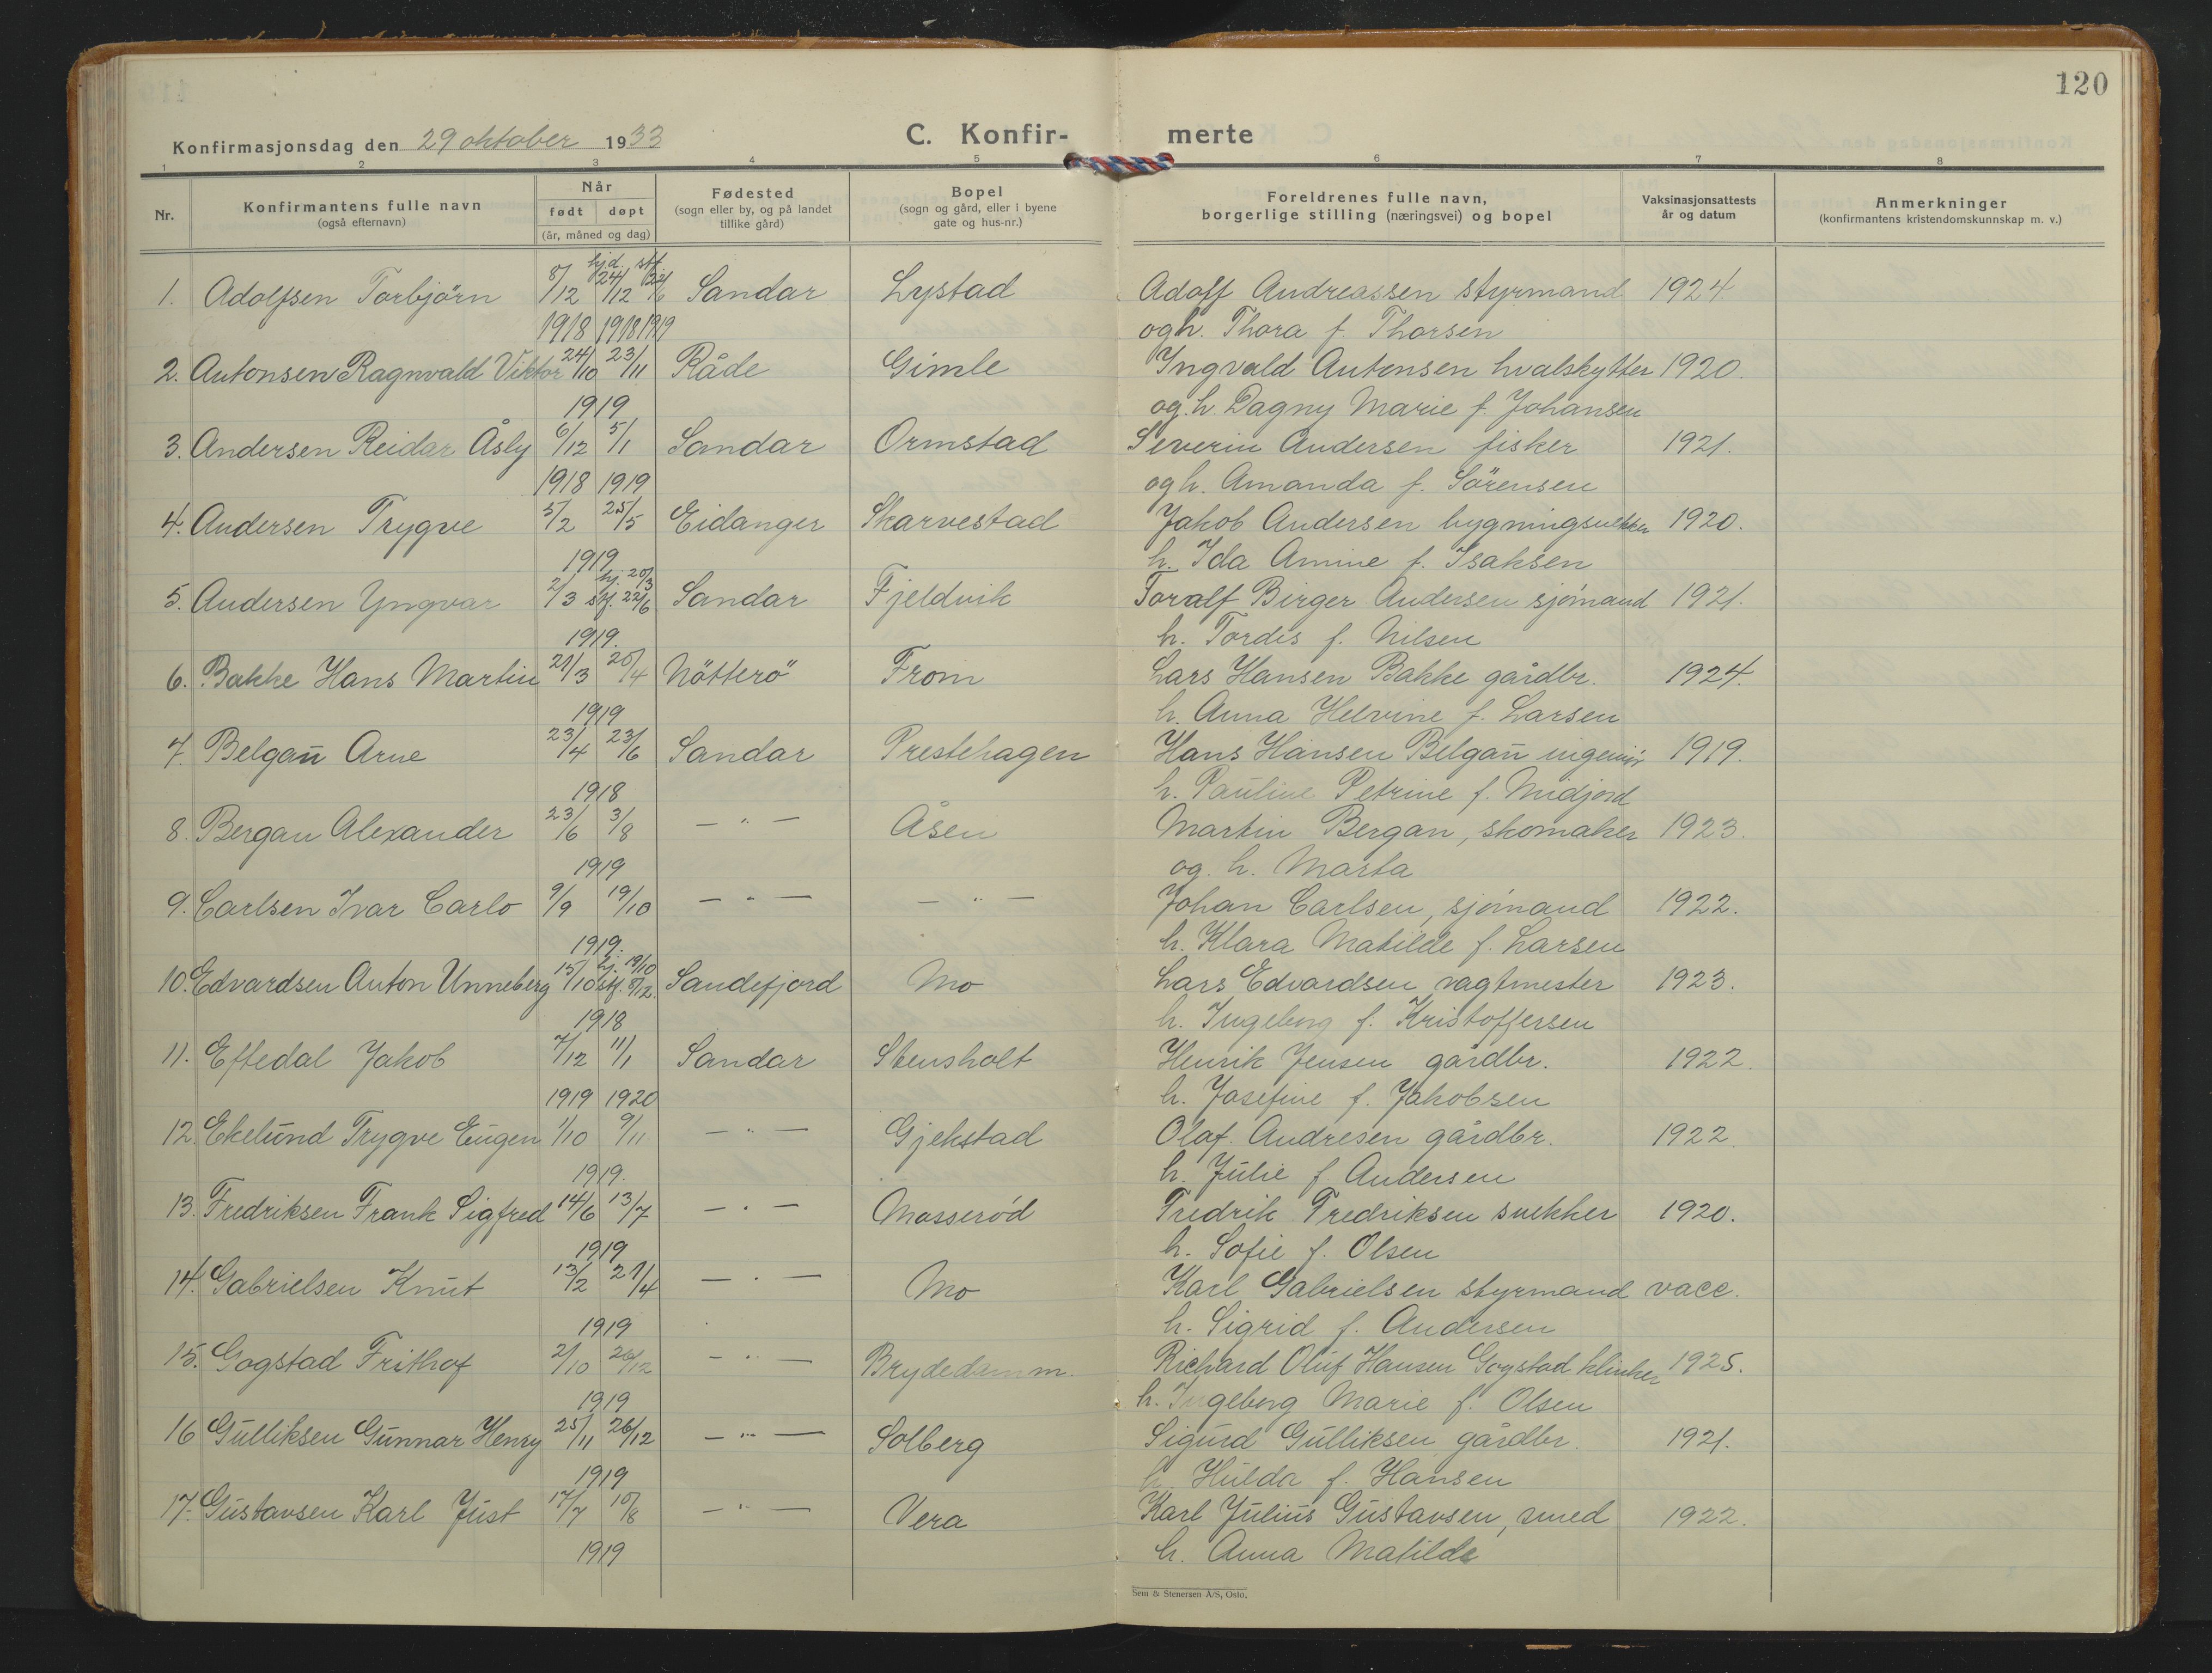 120
Konfirmasjonsdag den 29 oktober 1933 C. Konfir- merte
1 2 3 4 5 6 7 8
Nr. Konfirmantens fulle navn (også efternavn) Når født døpt (år, måned og dag) Fødested (sogn eller by, og på landet tillike gård) Bopel (sogn og gård, eller i byene gate og hus-nr.) Foreldrenes fulle navn, borgerlige stilling (næringsvei) og bopel Vaksinasjonsattests år og datum Anmerkninger (konfirmantens kristendomskunnskap m. v.)
hjd. stf.
1. Adolfsen Torbjörn 8/12 24/12 22/6 Sandar Lystad Adolf Andreassen styrmand 1924
1918 1918 1919 og h. Thora f. Thorsen
2. Antonsen Ragnvald Viktor 24/10 23/11 Råde Gimle Yngvald Antonsen hvalskytter 1920.
1919 og h. Dagny Marie f. Johansen
3. Andersen Reidar Åsly 6/12 5/1 Sandar Ormstad Severin Andersen fisker 1921.
1918 1919 og h. Amanda f. Sörensen
4. Andersen Trygve 5/2 25/5 Eidanger Skarvestad Jakob Andersen bygningsnekker 1920.
1919 h. Ida Amine f. Isaksen
5. Andersen Yngvar 2/3 hj. 20/3 stf. 22/6 Sandar Fjeldvik Toralf Birger Andersen sjömand 1921.
1919. h. Tordis f. Nilsen
6. Bakke Hans Martin 21/3 20/4 Nötterö From Lars Hansen Bakke gårdbr. 1924.
1919 h. Anna Helvine f. Larsen
7. Belgau Arne 23/4 23/6 Sandar Prestehagen Hans Hansen Belgau ingeniör 1919.
1918 h. Pauline Petrine f. Midjord
8. Bergan Alexander 23/6 3/8 — " — Åsen Martin Bergan, skomaker 1923.
1919 og h. Marta
9. Carlsen Ivar Carlo 9/9 19/10 — " — — " — Johan Carlsen, sjömand 1922.
1919. h. Klara Matilde f. Larsen
10. Edvardsen Anton Unneberg 15/10 hj. 19/10 stf. 8/12. Sandefjord Mo Lars Edvardsen vagtmester 1923.
1918 h. Ingeborg f. Kristoffersen
11. Eftedal Jakob 7/12 11/1 Sandar Stensholt Henrik Jensen gårdbr. 1922.
1919 1920 h. Josefine f. Jakobsen
12. Ekelund Trygve Eugen 1/10 9/11 — " — Gjekstad Olaf Andresen gårdbr. 1922.
1919. h. Julie f Andersen
13. Fredriksen Frank Sigfred 14/6 13/7 — " — Masserød Fredrik Fredriksen snekker 1920.
1919 h. Sofie f. Olsen
14. Gabrielsen Knut 13/2 21/4 — " — Mo Karl Gabrielsen styrmand vacc.
1919 h. Sigrid f. Andersen
15. Gogstad Frithof 2/10 26/12 — " — Brydedamm. Richard Oluf Hansen Gogstad klinker 1925.
1919 h. Ingeborg Marie f. Olsen
16 Gulliksen Gunnar Henry 25/11 26/12 — " — Solberg Sigurd Gulliksen gårdbr. 1921.
1919 h. Hulda f. Hansen
17. Gustavsen Karl Just 17/7 10/8 — " — Vera Karl Julius Gustavsen, smed 1922.
1919 h. Anna Matilde
Sem & Stenersen A/S, Oslo.